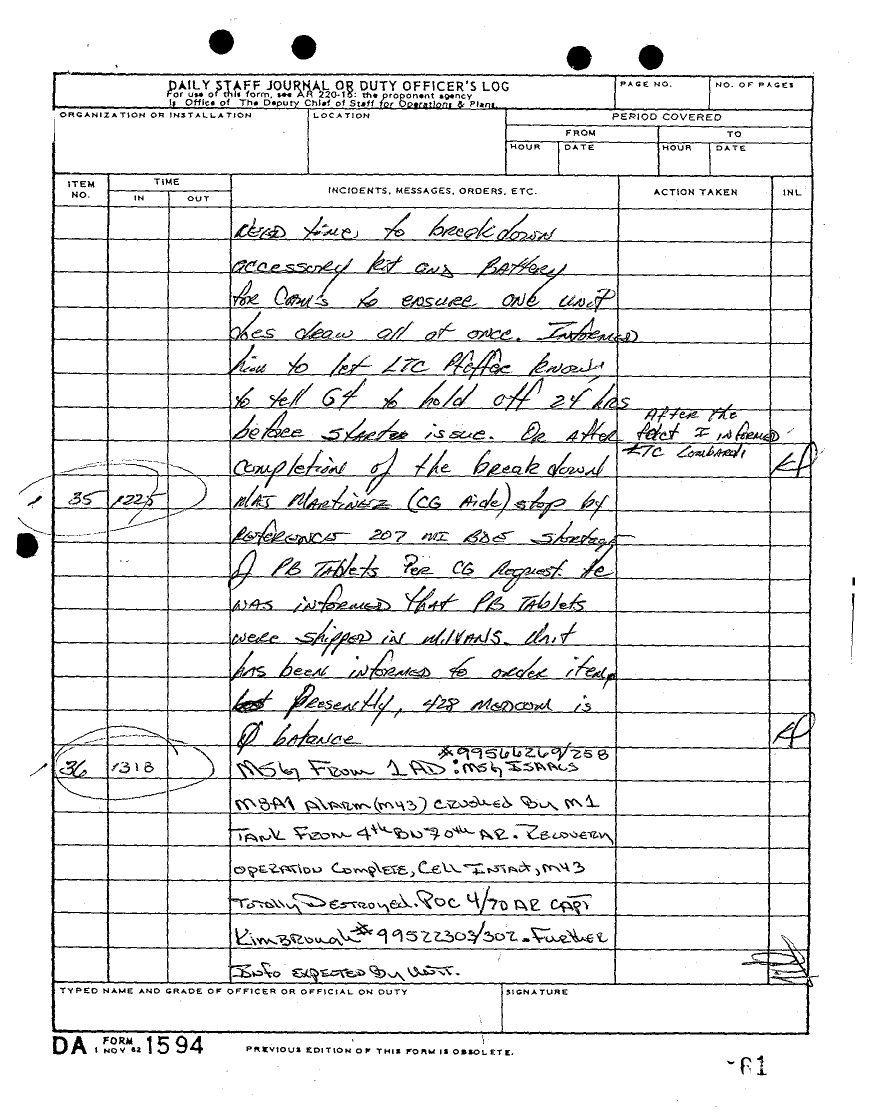 DAILY STAFF JOURNAL OR DUTY OFFICER'S LOG
For use of this form, see AR 220-15: the proponent agency
is Office of The Deputy Chief of Staff for Operations & Plans.
PAGE NO.
NO. OF PAGES
ORGANIZATION OR INSTALLATION
LOCATION
PERIOD COVERED
FROM
TO
HOUR
DATE
HOUR
DATE
ITEM NO.
TIME
IN
OUT
INCIDENTS, MESSAGES, ORDERS, ETC.
ACTION TAKEN
INL
need time to breakdown
accessory kit and Battery
for Cam's to ensure one unit
does draw all at once. Informed
him to let LTC Pfeffer know
to tell G4 to hold off 24 hrs
before started issue. Or after
completion of the breakdown
After the
fact I informed
LTC Lombardi
35 1225 MAJ Martinez (CG Aide) stop by
reference 207 MI BDE shortage
of PB Tablets Per CG Request. He
was informed that PB Tablets
were shipped in MILVANS. Unit
has been informed to order item,
Presently, 428 Medcom is
Ø balance
#99566269/258
36 1318 MSG From 1 AD: MSG ISAACS
M8A1 Alarm (M43) crushed By M1
Tank From 4th BN 70th AR. Recovery
operation complete, Cell Intact, M43
Totally Destroyed. POC 4/70 AR CAPT
Kimbrough #99522303/302. Further
Info expected By Unit.
TYPED NAME AND GRADE OF OFFICER OR OFFICIAL ON DUTY
SIGNATURE
DA FORM 1 NOV 62 1594
PREVIOUS EDITION OF THIS FORM IS OBSOLETE.
61